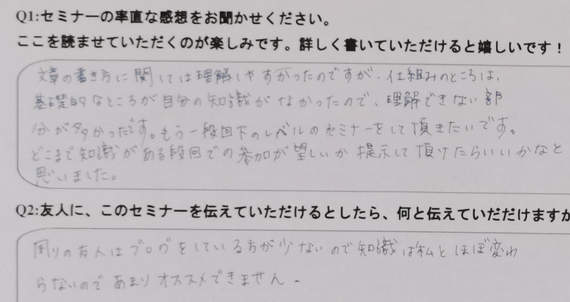 Q1:セミナーの率直な感想をお聞かせください。
ここを読ませていただくのが楽しみです。詳しく書いていただけると嬉しいです！
文章の書き方に関しては理解しやすかったのですが、仕組みのところは、
基礎的なところが自分の知識がなかったので、理解できない部
分が多かったです。もう一段回下のレベルのセミナーをして頂きたいです。
どこまで知識がある段回での参加が望しいか提示して頂けたらいいかなと
思いました。
Q2:友人に、このセミナーを伝えていただけるとしたら、何と伝えていただけますか
周りの友人はブログをしている方が少ないので知識は私とほぼ変わ
らないのであまりオススメできません。